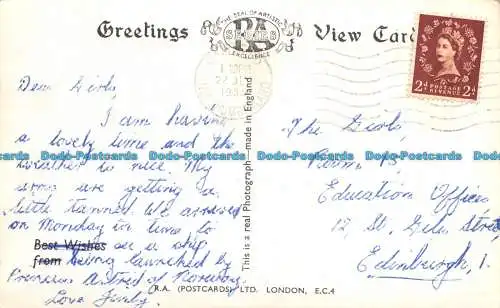 Greetings
View Card
THE SEAL OF ARTISTIC
R.A.
SERIES
EXCELLENCE
POSTAGE
REVENUE
2D 2D
Dear Girls
I am having
a lovely time and the
weather is nice. My
arms are getting a
little tanned. We arrived
on Monday in time to
Best Wishes see a ship
from being launched by
Princess Astrid of Norway.
Love
This is a real Photograph - made in England
The Girls
Room
Education Offices
12 St. Giles Street
Edinburgh, 1.
R.A. (POSTCARDS) LTD. LONDON, E.C.4
Dodo-Postcards Dodo-Postcards Dodo-Postcards